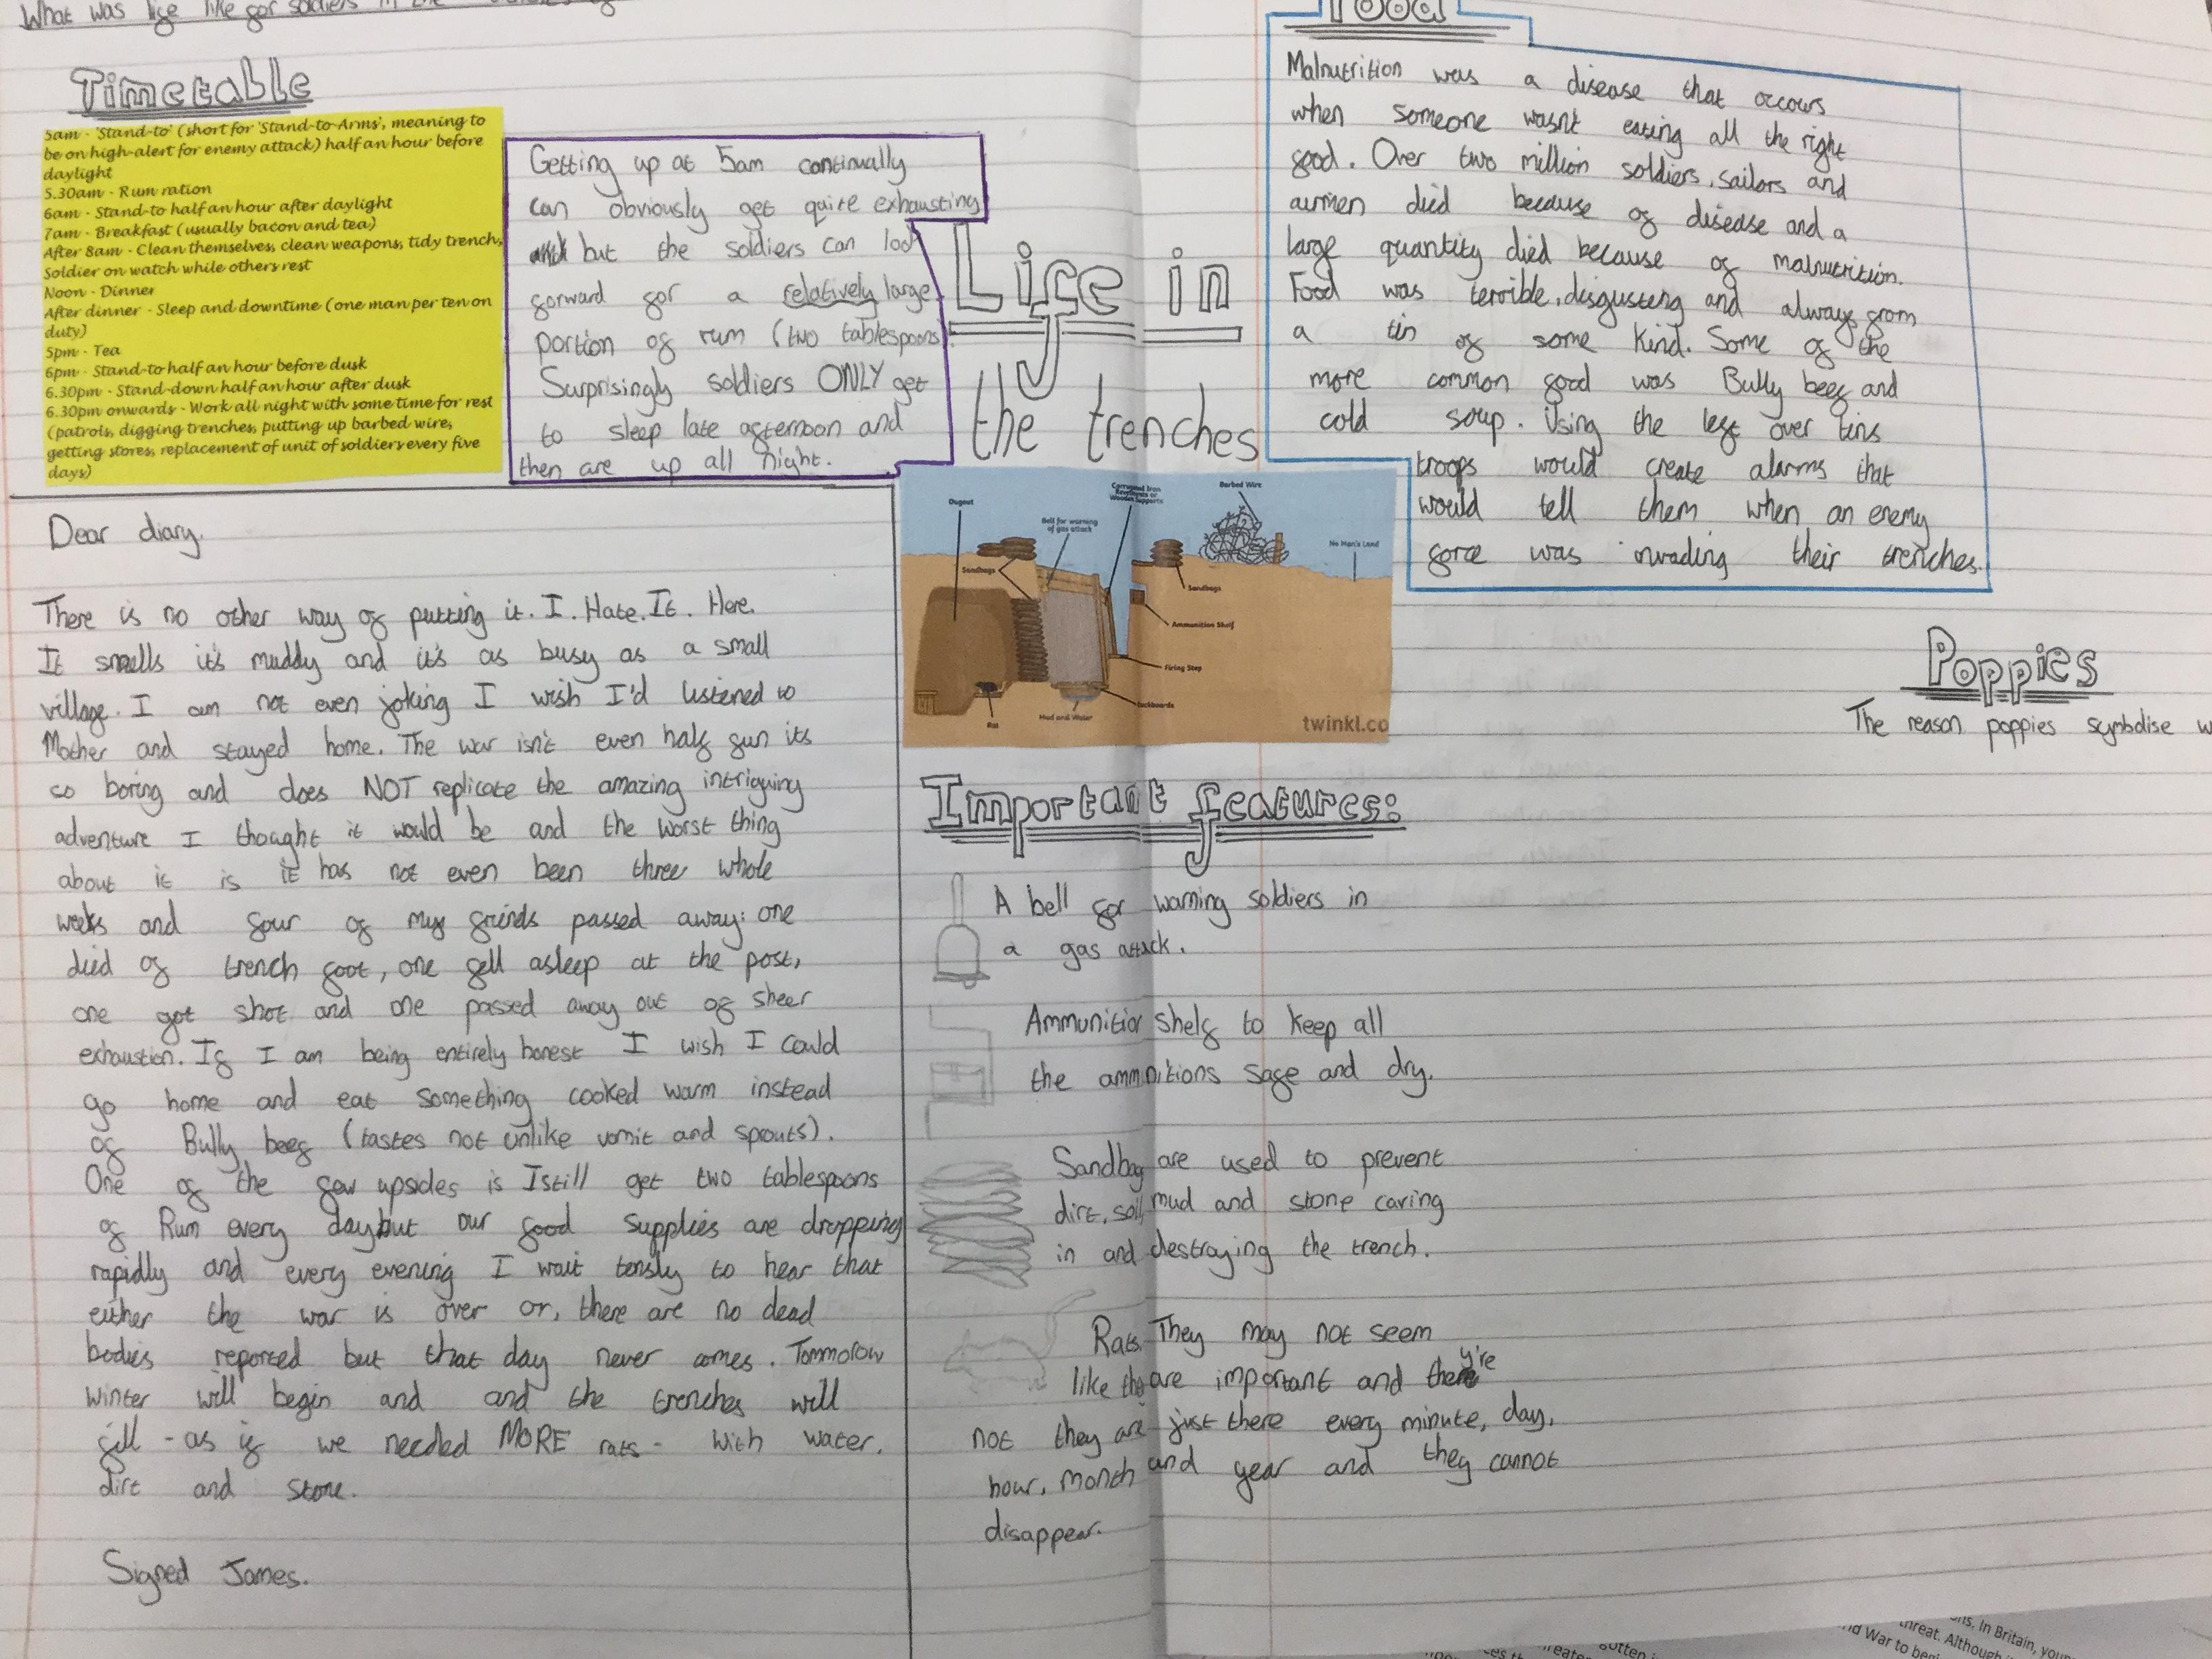 What was life like for soldiers in the
Timetable
5am - 'Stand-to' (short for 'Stand-to-Arms', meaning to
be on high-alert for enemy attack) half an hour before
daylight
5.30am - Rum ration
6am - Stand-to half an hour after daylight
7am - Breakfast (usually bacon and tea)
After 8am - Clean themselves, clean weapons, tidy trench,
Soldier on watch while others rest
Noon - Dinner
After dinner - Sleep and downtime (one man per ten on
duty)
5pm - Tea
6pm - Stand-to half an hour before dusk
6.30pm - Stand-down half an hour after dusk
6.30pm onwards - Work all night with some time for rest
(patrols, digging trenches, putting up barbed wire,
getting stores, replacement of unit of soldiers every five
days)
Getting up at 5am continually
can obviously get quite exhausting
but the soldiers can look
forward for a relatively large
portion of rum (two tablespoons).
Surprisingly soldiers ONLY get
to sleep late afternoon and
then are up all night.
Dear diary,
There is no other way of putting it. I. Hate. It. Here.
It smells it's muddy and it's as busy as a small
village. I am not even joking I wish I'd listened to
Mother and stayed home. The war isn't even half fun its
so boring and does NOT replicate the amazing intriguing
adventure I thought it would be and the worst thing
about it is it has not even been three whole
weeks and four of my freinds passed away: one
died of trench foot, one fell asleep at the post,
one got shot and one passed away out of sheer
exhaustion. If I am being entirely honest I wish I could
go home and eat something cooked warm instead
of Bully beef (tastes not unlike vomit and sprouts).
One of the few upsides is I still get two tablespoons
of Rum every day but our food supplies are dropping
rapidly and every evening I wait tensly to hear that
either the war is over or, there are no dead
bodies reported but that day never comes. Tommorow
winter will begin and and the trenches will
fill - as if we needed MORE rats - with water,
dirt and stone.
Signed James.
Life in
the trenches
Dugout
Bell for warning
of gas attack
Corrugated Iron
Revetments or
Wooden Supports
Barbed Wire
No Man's Land
Sandbags
Sandbags
Ammunition Shelf
Firing Step
Duckboards
Mud and Water
Rat
twinkl.co
Important features:
A bell for warning soldiers in
a gas attack.
Ammunition shelf to keep all
the ammnitions safe and dry.
Sandbag are used to prevent
dirt, soil, mud and stone caving
in and destraying the trench.
Rats. They may not seem
like the are important and they're
not they are just there every minute, day,
hour, month and year and they cannot
disappear.
Food
Malnutrition was a disease that occours
when someone wasnt eating all the right
food. Over two million soldiers, sailors and
airmen died because of disease and a
large quantity died because of malnutrition.
Food was terrible, disgusting and always from
a tin of some kind. Some of the
more common food was Bully beef and
cold soup. Using the left over tins
troops would create alarms that
would tell them when an enemy
force was invading their trenches.
Poppies
The reason poppies symbolise
ons. In Britain, you
threat. Although
nd War to begi